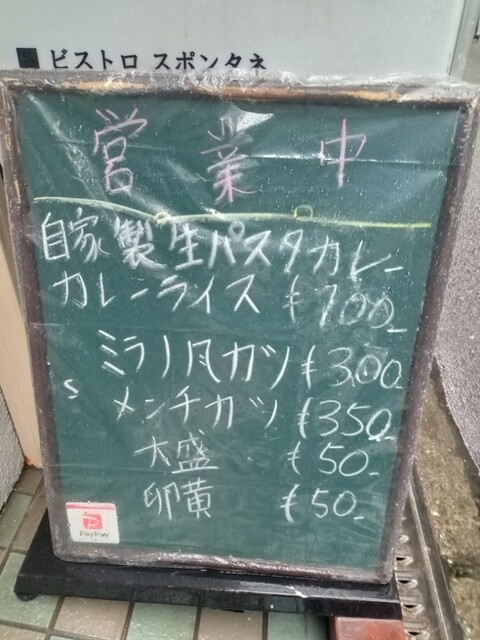 ■ ビストロ スポンタネ
営業中
自家製生パスタカレー
カレーライス ¥700-
ミラノ風カツ ¥300-
メンチカツ ¥350-
大盛 ¥50-
卵黄 ¥50-
PayPay